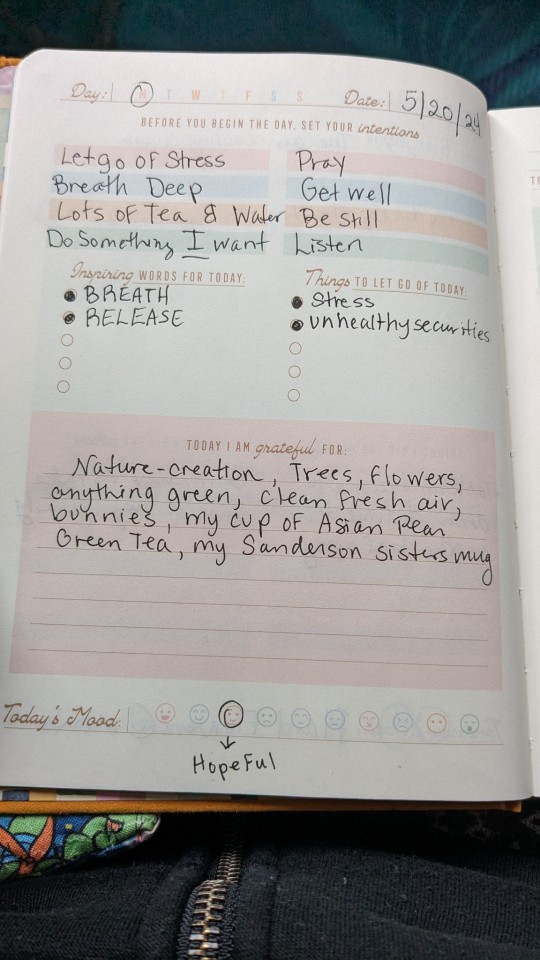 Day: M T W T F S S Date: 5/20/24
BEFORE YOU BEGIN THE DAY, SET YOUR intentions
Let go of Stress Pray
Breath Deep Get well
Lots of Tea & Water Be Still
Do Something I want Listen
Inspiring WORDS FOR TODAY: Things TO LET GO OF TODAY:
BREATH Stress
RELEASE unhealthy securities
TODAY I AM grateful FOR:
Nature-creation, Trees, flowers,
anything green, clean fresh air,
bunnies, my cup of Asian Pear
Green Tea, my Sanderson sisters mug
Today's Mood:
HopeFul